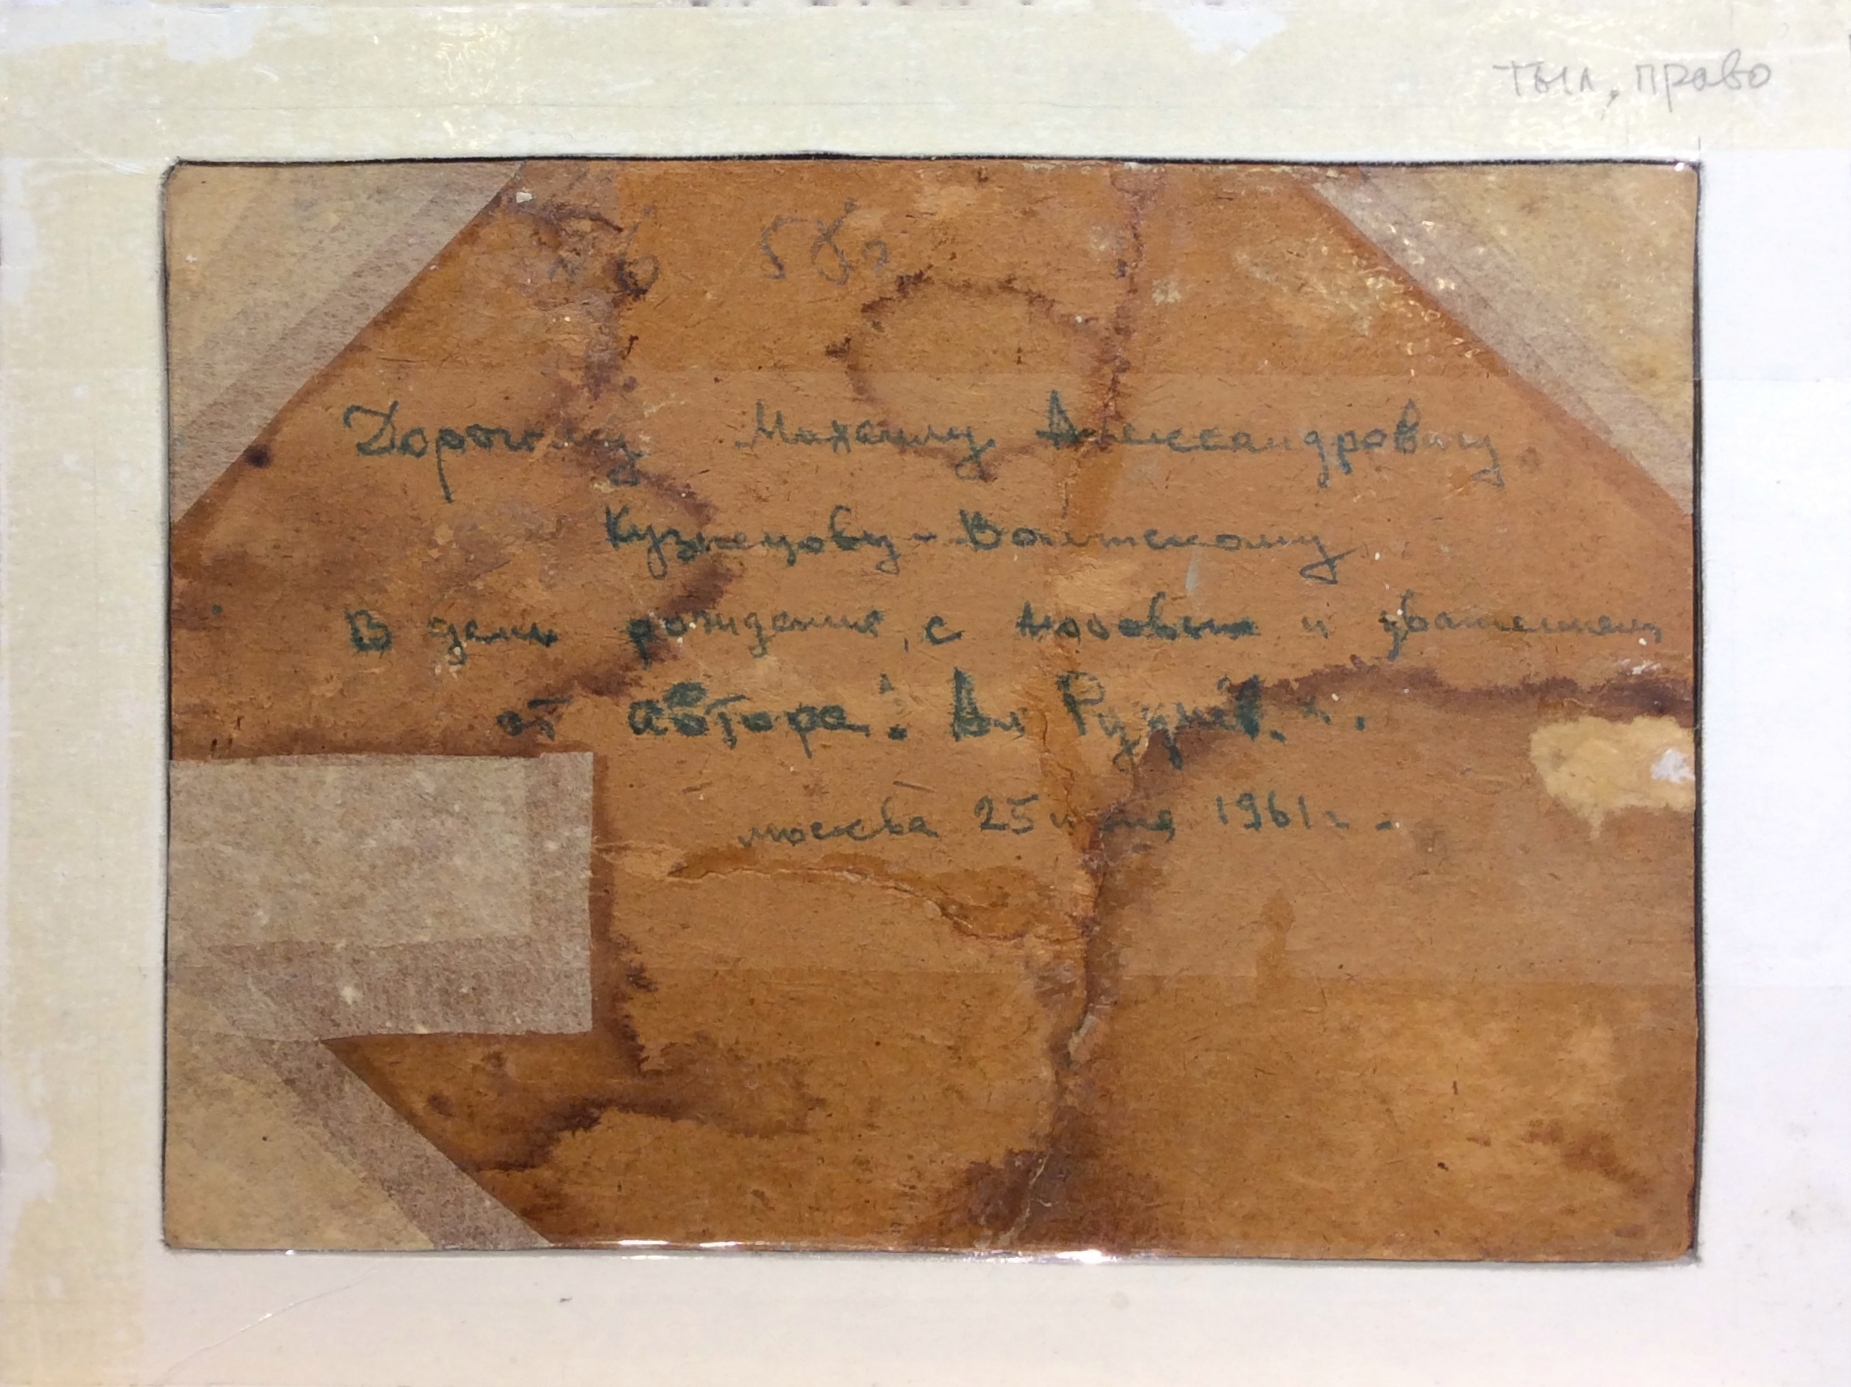 тыл, право
Дорогому Михаилу Александровичу
Кузнецову-Волжскому
В день рождения, с любовью и уважением
от автора: Ал Руднев.
москва 25 1961г.